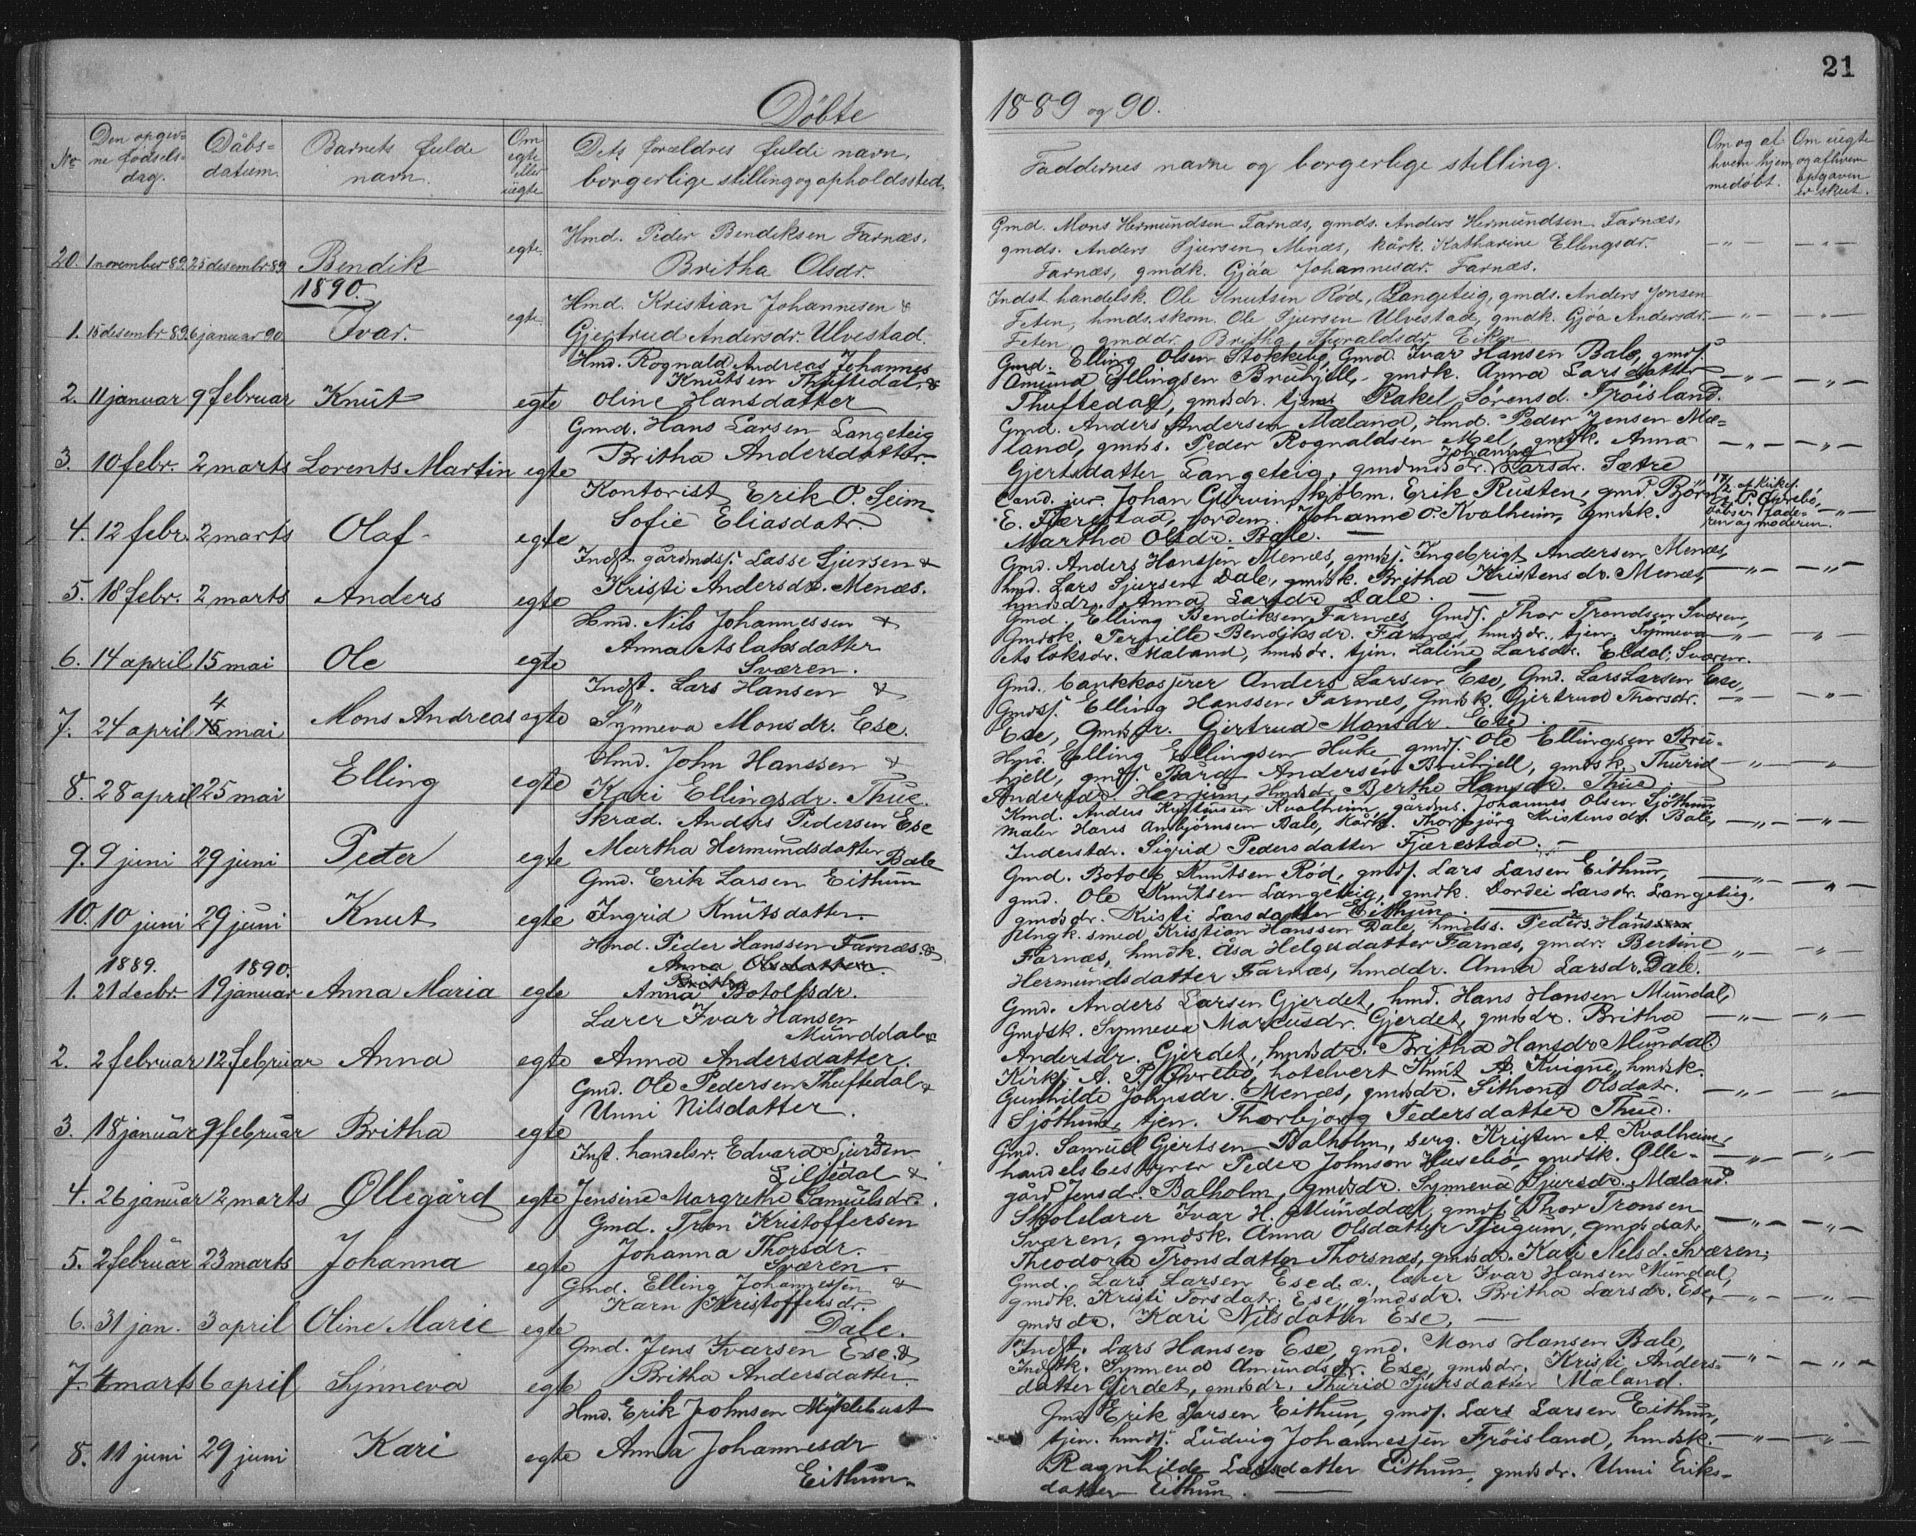 21
Döbte 1889 og 90.
No. Den opgiv=
ne födsels=
dag.
Dåbs=
datum.
Barnets fulde
navn.
Om
egte
eller
uegte
Dets forældres fulde navn,
borgerlige stilling og opholdssted.
Faddernes navne og borgerlige stilling.
Om og af
hvem hjem
medöbt.
Om uegte
og af hvem
opgaven
er skeet.
20. 1 november 89. 25 desembr 89 Bendik egte
Hmd. Peder Bendiksen Farnæs,
Britha Olsdr.
Gmd. Mons Hermundsen Farnæs, gmds. Anders Hermundsen Farnæs,
gmds. Anders Sjursen Menæs, kårk. Katharine Ellingsdr.
Farnæs, gmdk. Gjöa Johannesdr. Farnæs.
1890.
1. 15 desembr 89. 6 januar 90 Ivar. egte
Hmd. Kristian Johannesen &
Gjertrud Andersdr. Ulvestad.
Indst. handelsk. Ole Knutsen Röd, Langeteig, gmds. Anders Jonsen
Feten, hmds. skom. Ole Sjursen Ulvestad, gmdk. Gjöa Andersdr.
Feten, gmddr. Britha Thoraldsdr. Eiken
2. 11 januar 9 februar Knut egte
Hmd. Rognald Andreas Johannes
Knutsen Thuftedal &
Oline Hansdatter
Gmd. Elling Olsen Stokkebö, Gmd. Ivar Hansen Bale, gmds.
Amund Ellingsen Brubjell, gmdk. Anna Larsdatter
Thuftedal, gmdsdr. tjen. Rakel Sörensd. Fröisland.
3. 10 febr. 2 marts Lorents Martin egte
Gmd. Hans Larsen Langeteig
Britha Andersdatter.
Gmd. Anders Andersen Mæland, Hmd. Peder Jensen Mæ=
land, gmds. Peder Rognaldsen Mel, gmdsk. Anna
Gjertsdatter Langeteig, gmdmdsdr. Johanna Larsdr. Sætre
4. 12 febr. 2 marts Olaf egte
Kontorist Erik O. Seim
Sofie Eliasdatr
Cand. jur. Johan Gurvin, kjöbm. Erik Rusten, gmd. Björn
E. Fjærestad, jordem. Johanne O. Kvalheim, gmdsk.
Martha Olsdr. Bale.
17/2 af kirkes.
A. P. Övrebö,
5. 18 febr. 2 marts Anders egte
Indst. gårdmds. Lasse Sjursen &
Kristi Andersdr. Menæs.
Gmd. Anders Hanssen Menæs, gmds. Ingebrigt Andersen Menæs,
hmd. Lars Sjursen Dale, gmdsk. Britha Kristensdr. Menæs,
hmdsdr. Anna Larsdr Dale.
6. 14 april 15 mai Ole egte
Hmd. Nils Johannessen &
Anna Aslaksdatter
Sværen.
Gmd. Elling Bendiksen Farnæs, Gmds. Thor Trondsen Sværen,
Gmdsk. Pernille Bendiksdr. Farnæs, hmdsdr. tjen. Synneva
Aslaksdr. Mæland, hmdsdr. tjen. Laline Larsdr. Eldal, Sværen.
7. 24 april 4 mai Mons Andreas egte
Indst. Lars Hansen &
Synneva Monsdr. Ese.
Gmd. bankkasserer Anders Larsen Ese, Gmd. Lars Larsen Ese,
Gmds. Elling Hanssen Farnæs, Gmdsk. Gjertrud Thorsdr.
Ese, Gmdsdr. Gjertrud Monsdr. Ese.
8. 28 april 25 mai Elling egte
Hmd. John Hanssen &
Kari Ellingsdr. Thue.
Elling Ellingsen Huke, gmds. Ole Ellingsen Bru=
bjell, gmds. Bård Andersen Brubjell, gmdsk. Thurid
Andersdr. Henjum, Hmdsdr Berthe Hansdr. Thue.
9. 9 juni 29 juni Peter egte
Skræd. Anders Pedersen Ese
Martha Hermundsdatter Bale
Kmd. Anders Kristensen Kvalheim, gårdms. Johannes Olsen Sjöthun
maler Hans Ambjörnsen Bale, Kårk. Thorbjörg Kristensdr. Bale,
Inderstdr. Sigrid Pedersdatter Fjærestad.
10. 10 juni 29 juni Knut egte
Gmd. Erik Larsen Eithun
Ingrid Knutsdatter
Gmd. Botolf Knutsen Röd, gmds. Lars Larsen Eithun,
gmd. Ole Knutsen Langeteig, gmdk. Dordei Larsdr. Langeteig,
gmdsdr. Kristi Larsdatter Eithun.
1889. 1890.
1. 21 decbr. 19 januar Anna Maria egte
Hmd. Peder Hanssen Farnæs &
Anna Olsdatter
Anna Botolfsdr.
Ungk. smed Kristian Hanssen Dale, hmdss. Peder Hans
Farnæs, hmdk. Åsa Helgesdatter Farnæs, gmdr. Bertine
Hermundsdatter Farnæs, hmddr. Anna Larsdr. Dale.
2. 2 februar 12 februar Anna egte
Lærer Ivar Hansen
Munddal &
Anna Andersdatter.
Gmd. Anders Larsen Gjerdet, hmd. Hans Hansen Mundal,
Gmdsk. Synneva Marcusdr. Gjerdet, gmdsdr. Britha
Andersdr. Gjerdet, hmdsdr. Britha Hansdr Mundal.
3. 18 januar 9 februar Britha egte
Gmd. Ole Pedersen Thuftedal &
Unni Nilsdatter.
Kirks. A. P. Övrebö, hotelvert Knut A. Kvigne, hmdsk.
Gunhilde Johnsdr. Menæs, gmdsdr. Sithone Olsdatr.
Sjöthun, tjen. Thorbjorg Pedersdatter Thue.
4. 26 januar 2 marts Øllegård egte
Inst. handelsr. Edvard Sjursen
Lilledal &
Jensine Margrethe Samuelsdr.
Gmd. Samuel Gjertsen Balholm, serg. Kristen A. Kvalheim,
handelsbestyrer Peder Johnson Husebö, gmdsk. Ølle=
gård Jensdr. Balholm, gmdsdr. Synneva Sjursdr. Mæland
5. 2 februar 23 marts Johanna egte
Gmd. Tron Kristoffersen
Johanna Thorsdr.
Sværen.
Skolelærer Ivar H. Munddal, gmds. Thor Tronsen
Sværen, gmdsk. Anna Olsdatter Tjugum, gmdsdatr.
Theodora Tronsdatter Thorsnæs, gmdsdr. Kari Nelsd. Sværen.
6. 31 jan. 3 april Oline Marie egte
Gmd. Elling Johannessen &
Karn Kristoffersdr.
Dale.
Gmd. Lars Larsen Ese d.æ. lærer Ivar Hansen Mundal,
gmdk. Kristi Torsdatr. Ese, gmdsdr. Britha Larsdr. Ese,
gmdsdr. Kari Nilsdatter Ese,
7. 4 marts 6 april Synneva egte
Gmd. Jens Ivarsen Ese &
Britha Andersdatter
Indst. Lars Hansen Ese, gmd. Mons Hansen Bale,
Indstk. Synneva Amundsdr. Ese, gmdsdr. Kristi Anders=
datter Gjerdet, gmdsdr. Thurid Sjursdatter Mæland.
8. 11 juni 29 juni Kari egte
Hmd. Erik Johnsen Myklebust
Anna Johannesdr
Eithun
Gmd Erik Larsen Eithun, gmds. Lars Larsen Eithun,
tjen. hmds. Ludvig Johannessen Fröisland, hmdsk.
Ragnhilde Larsdatter Eithun, gmdsdr. Unni Eriks=
datter Eithun.